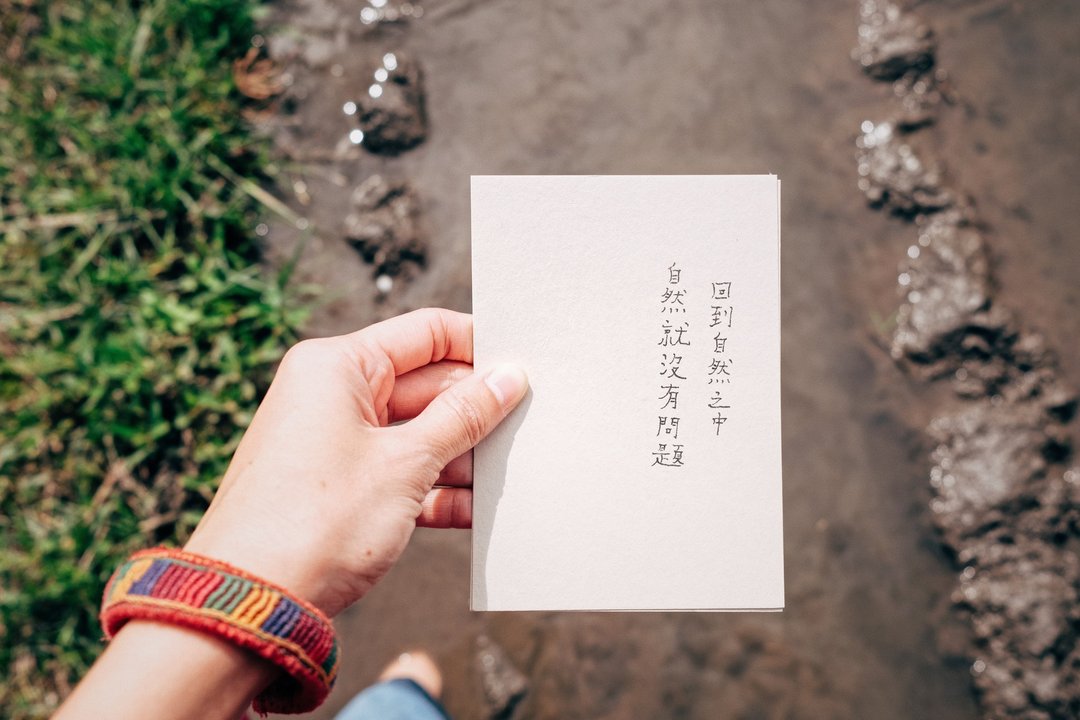 回到自然之中
自然就沒有問題